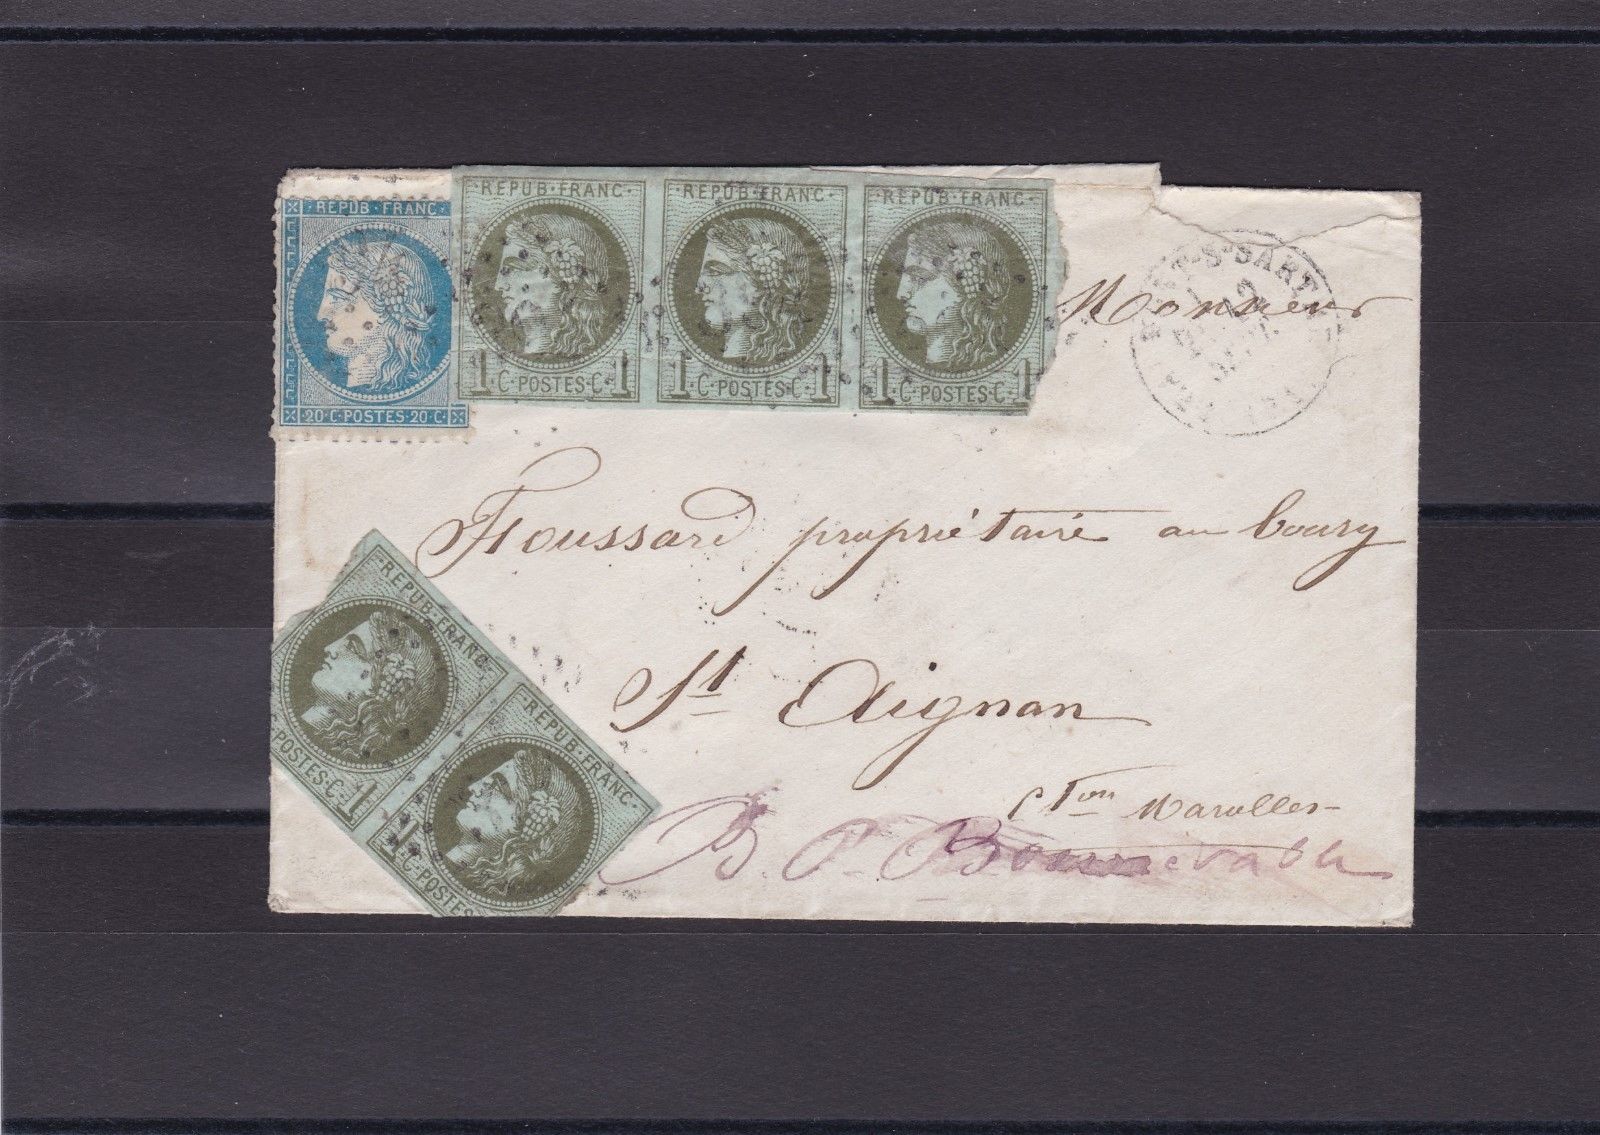 REPUB·FRANC·
20·C·POSTES·20·C·
·REPUB·FRANC·
1·C·POSTES·C·1
·REPUB·FRANC·
1·C·POSTES·C·1
·REPUB·FRANC·
1·C·POSTES·C·1
Monsieur
Houssard propriétaire au bourg
St Aignan
cton Marolles
·REPUB·FRANC·
POSTES·C·1
·REPUB·FRANC·
1·C·POSTES